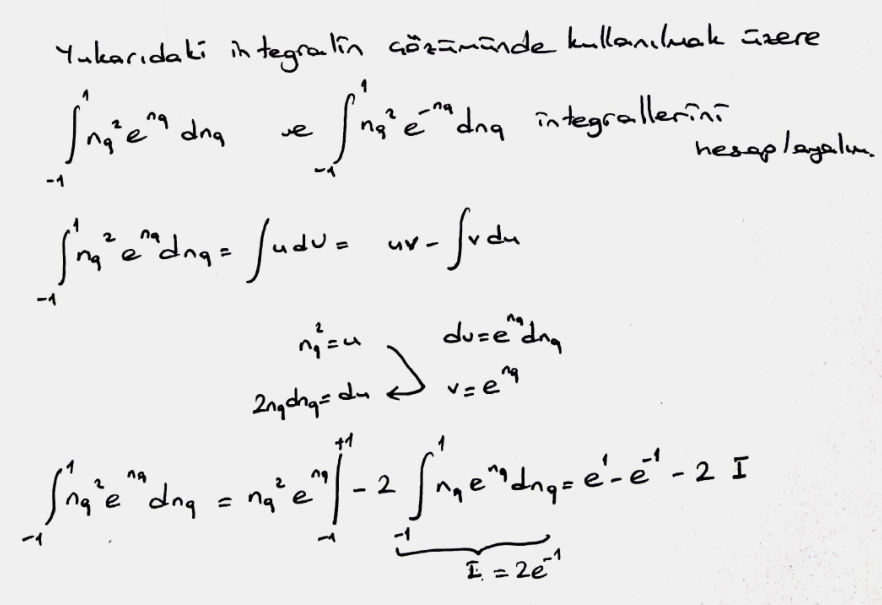 Yukarıdaki integralin çözümünde kullanılmak üzere
∫₋₁¹ n_q² e^{n_q} dn_q ve ∫₋₁¹ n_q² e^{-n_q} dn_q integrallerini
hesaplayalım.
∫₋₁¹ n_q² e^{n_q} dn_q = ∫u dv = uv - ∫v du
n_q² = u dv = e^{n_q} dn_q
2n_q dn_q = du v = e^{n_q}
∫₋₁¹ n_q² e^{n_q} dn_q = n_q² e^{n_q} |₋₁⁺¹ - 2 ∫₋₁¹ n_q e^{n_q} dn_q = e¹ - e⁻¹ - 2 I
I = 2e⁻¹